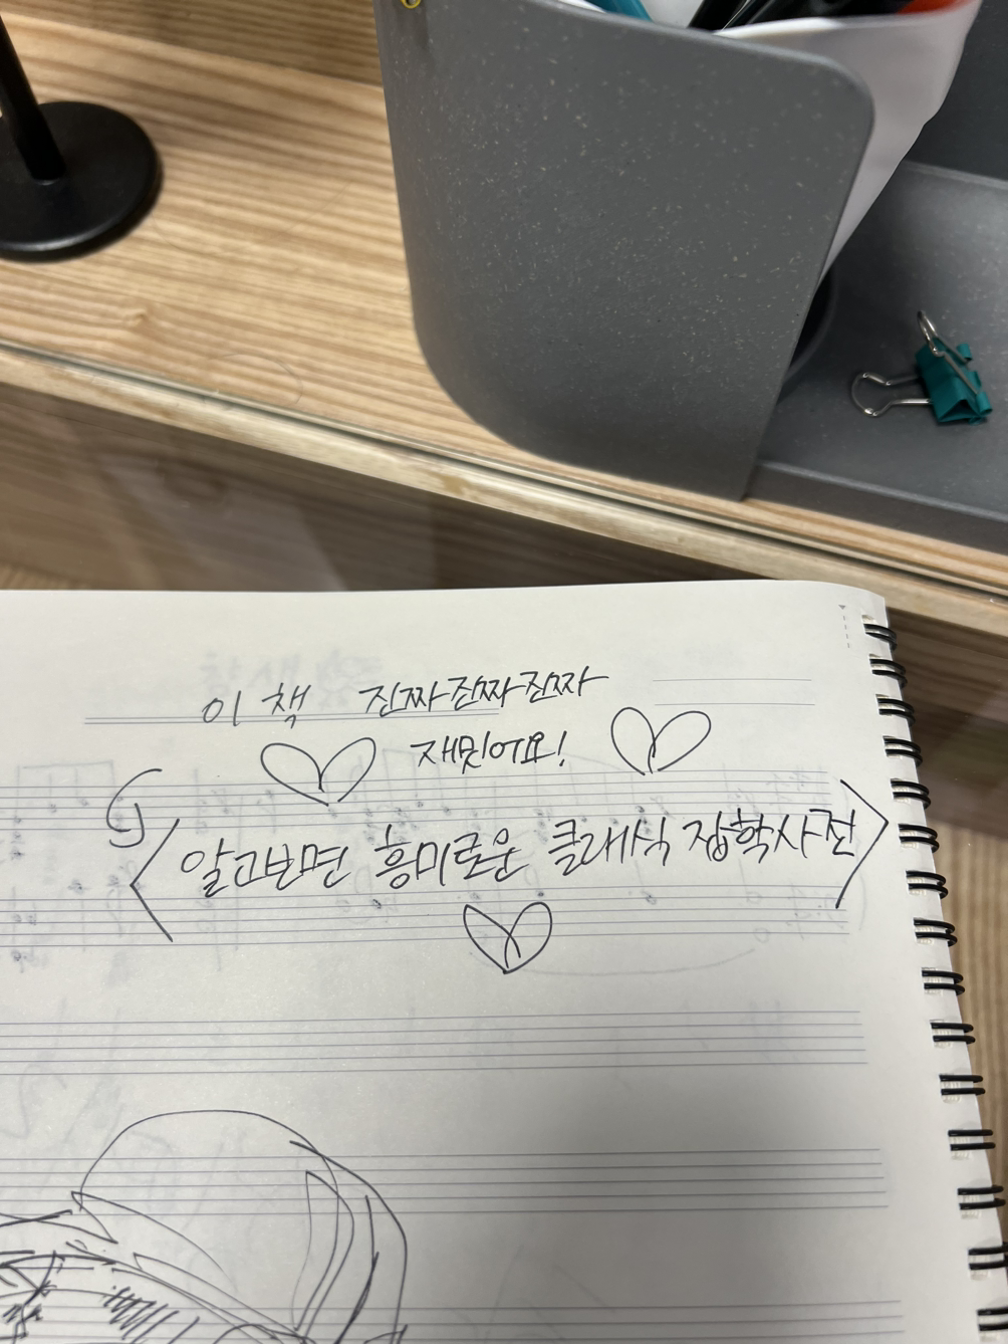 이 책 진짜진짜진짜
재밌어요!
<알고보면 흥미로운 클래식 잡학사전>